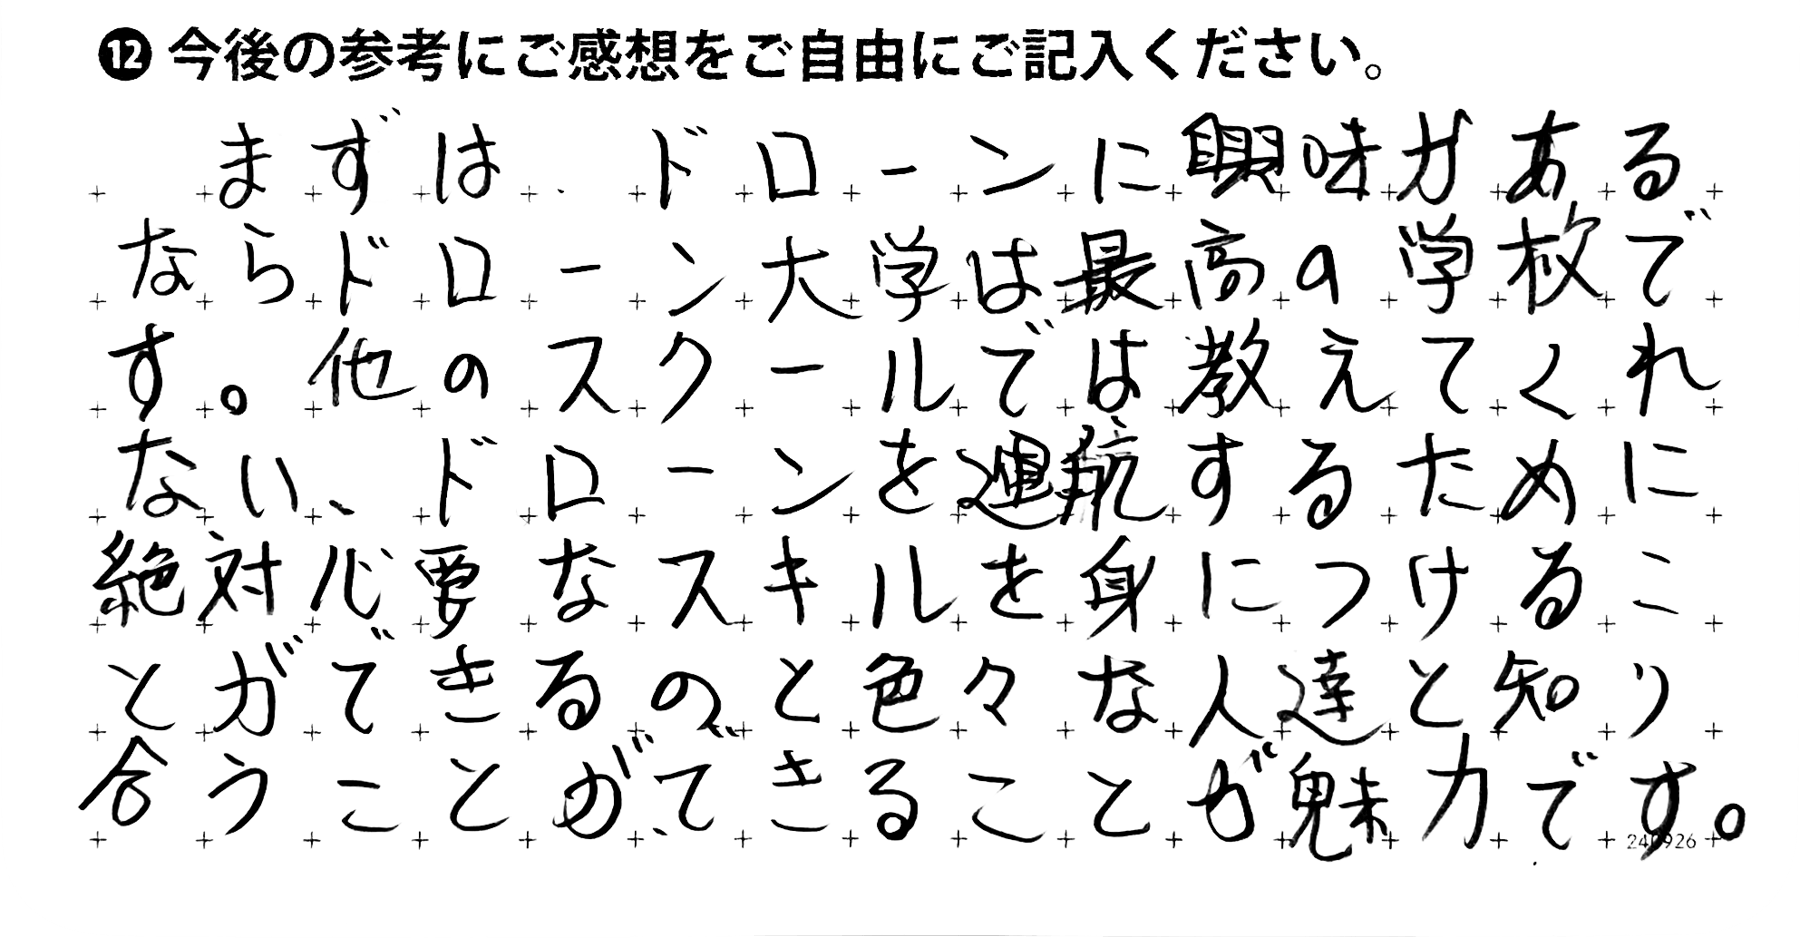 ⓬ 今後の参考にご感想をご自由にご記入ください。
まずは、ドローンに興味がある
ならドローン大学は最高の学校で
す。他のスクールでは教えてくれ
ない、ドローンを運航するために
絶対必要なスキルを身につけるこ
とができるのと色々な人達と知り
合うことができることが魅力です。
240926